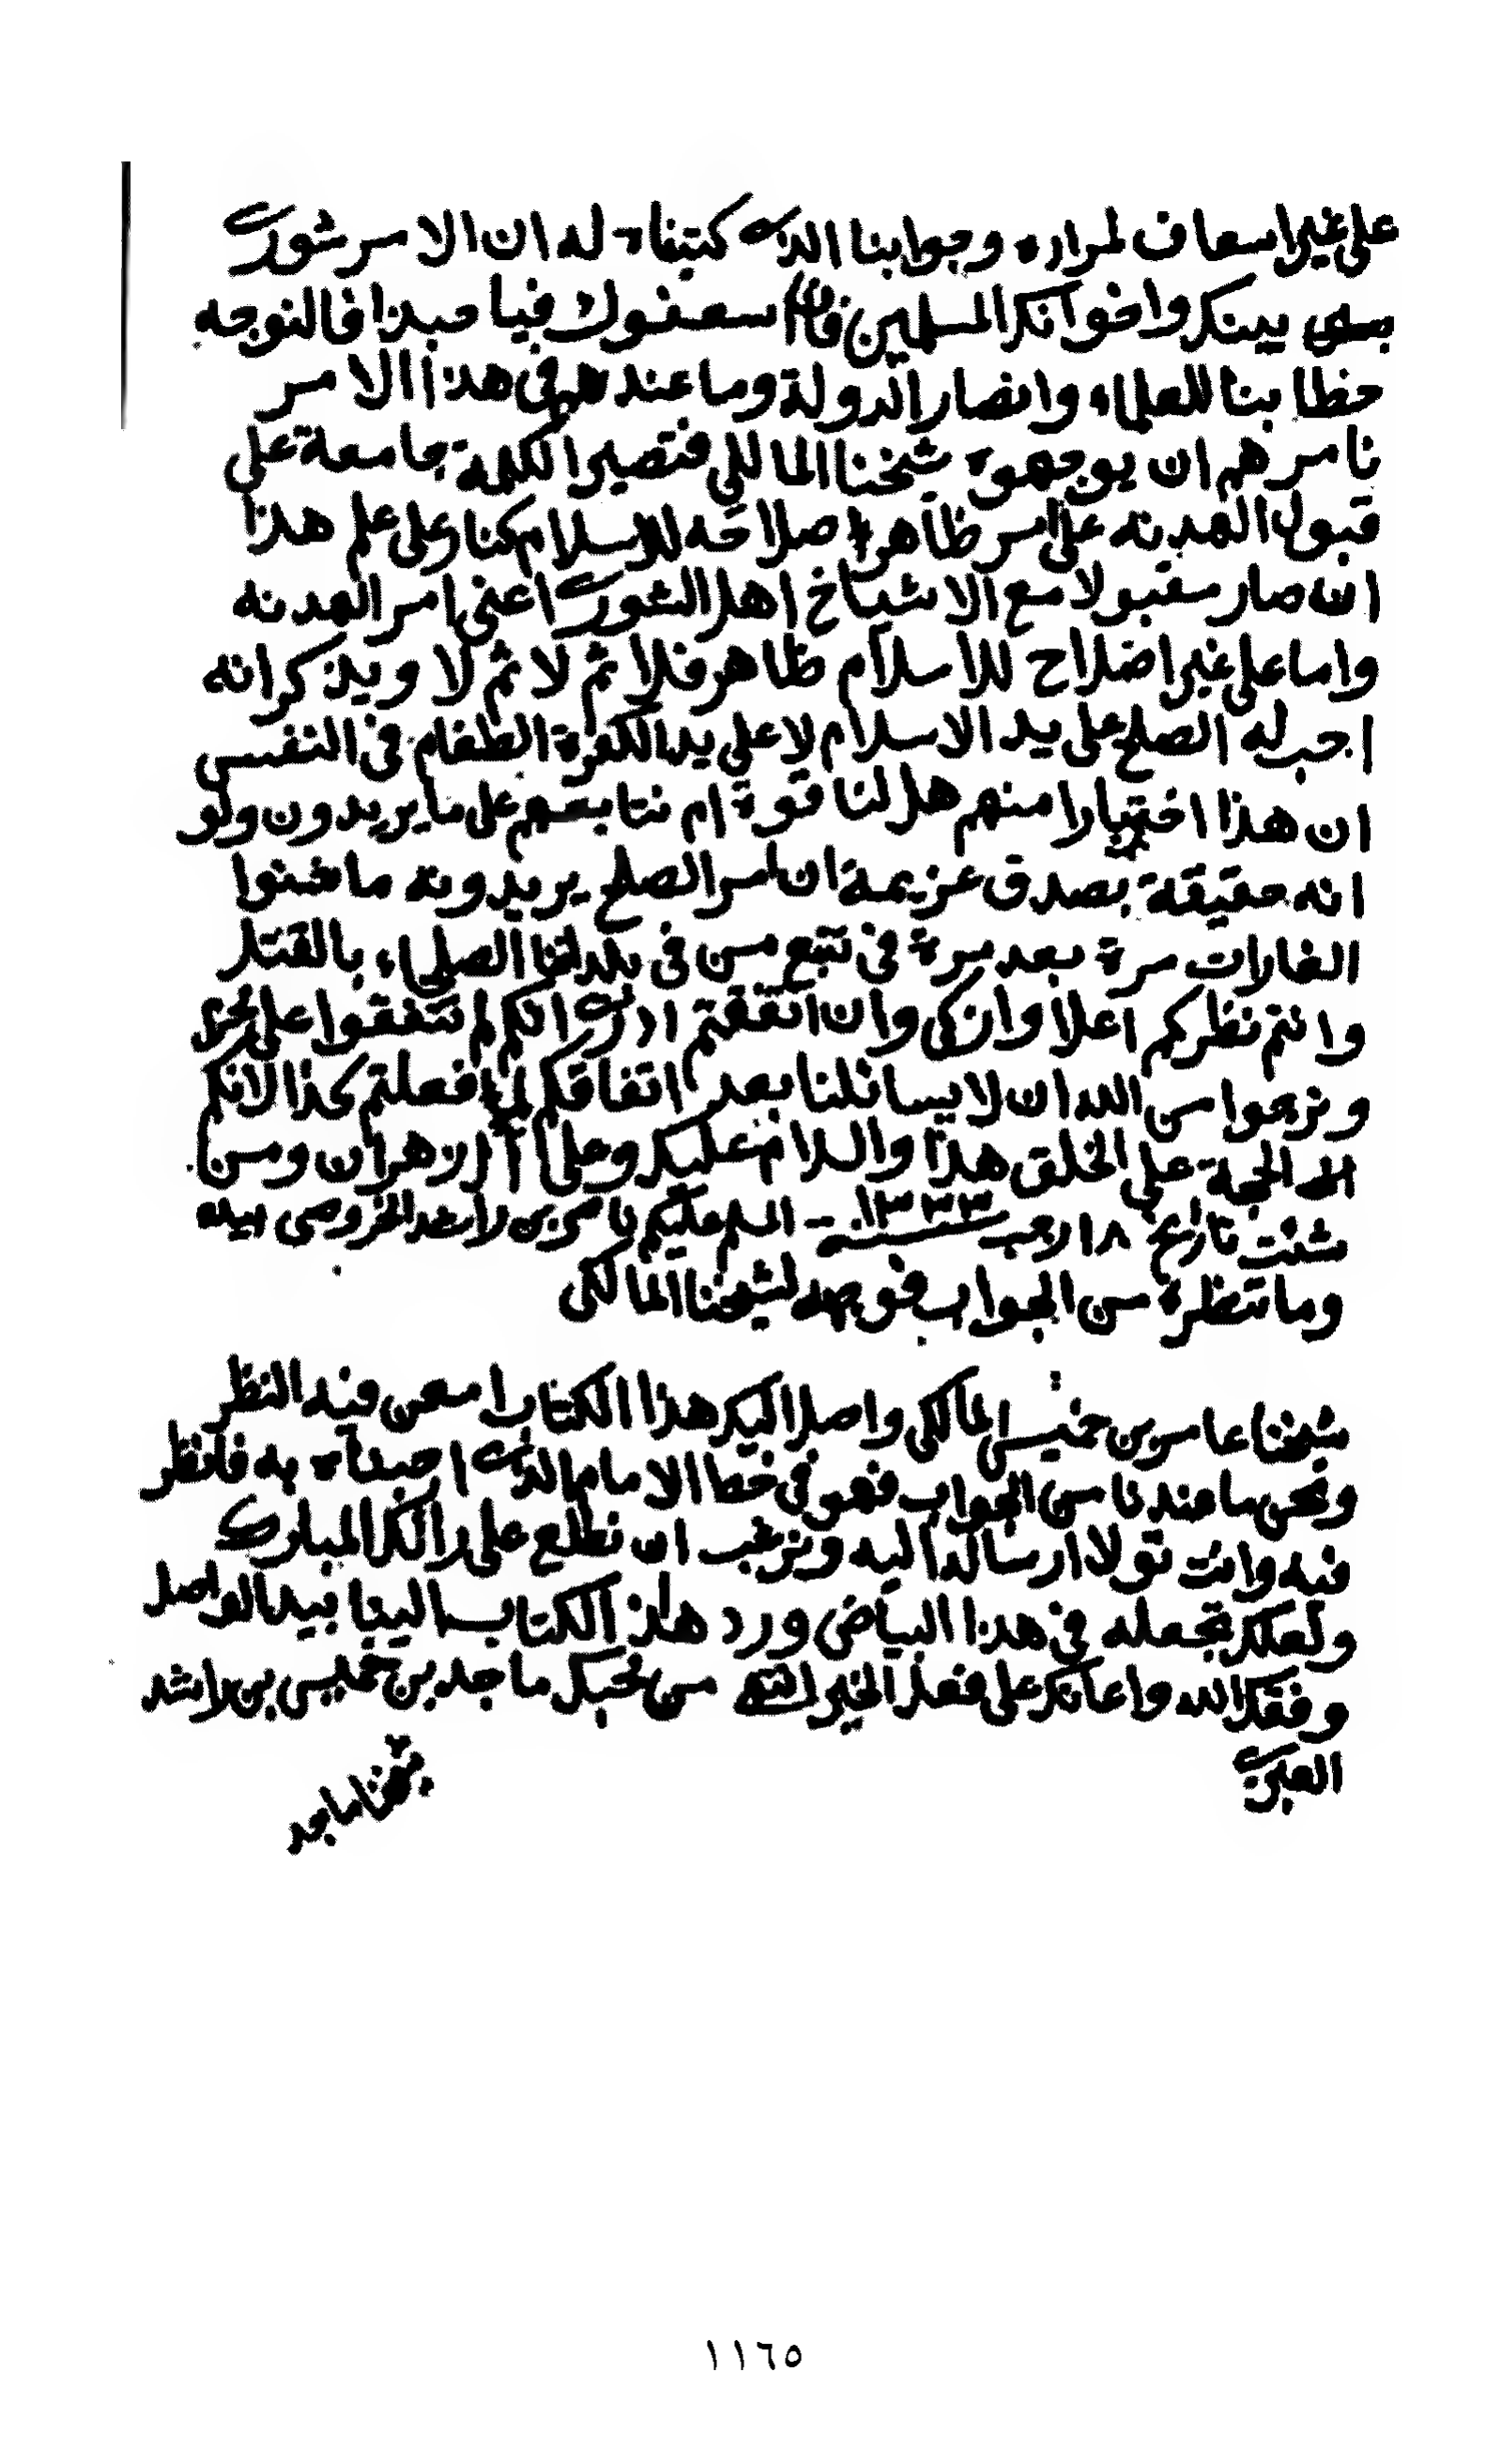 على غير اسعاف لمراده وجوابنا الذي كتبناه له ان الامر شورى
بينكم واخوانكم المسلمين فان اسعفوك فيا حبذا فالتوجه
خطابنا للعلماء وانصار الدولة وما عندهم في هذا الامر
نامرهم ان يوجهوه شيخنا المالكي فتصير الكلمة جامعة على
قبول الهدنه على امر ظاهر صلاحه للاسلام كنا وعلى علم هذا
ان صار مقبولا مع الاشياخ اهل الشورى اعني امر الهدنه
واما على غير اصلاح للاسلام ظاهر فلا ثم لا ثم لا ويذكر انه
احب له الصلح على يد الاسلام لا على يد الكفرة الطغام في النفس
ان هذا اختبارا منهم هل لنا قوة ام نتابعهم على ما يريدون ولو
انه حقيقة بصدق عزيمة ان امر الصلح يريدونه ما شنوا
الغارات مرة بعد مرة في تتبع من في بلداننا الصلحاء بالقتل
وانتم نظركم اعلا وازكى وان اتفقتم ادرى انكم لم تتفقوا على
ونرجوا من الله ان لا يسائلنا بعد اتفاقكم لم فعلتم كذا لانكم
الحجة على الخلق هذا والسلام عليكم وعلى الازهران ومن
شئت تاريخ ١٨ رجب سنة ١٣٣٣ المسلم عليكم ناصر بن راشد الخروصي بيده
وما تنتظره من الجواب فوجهه لشيخنا المالكي
شيخنا عامر بن خميس المالكي واصل اليكم هذا الكتاب امعن فيه النظر
ونحن ما عندنا من الجواب فهو في خط الامام الذي اجبناه به فانظر
فيه وانت تولا ارساله اليه ونرغب ان نطلع على رائكم المبارك
ولعلكم تجعله في هذا البياض ورد هذا الكتاب الينا بيد الواصل
وفقكم الله واعانكم على فعل الخير من محبكم ماجد بن خميس بن راشد
العبري
شيخنا ماجد
١١٦٥